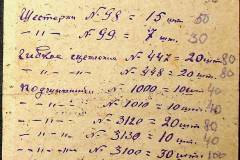 Шестерки № 98 = 15 шт. 50
-"- -"- № 99 = 7 шт. 30
Гибкие сцепления № 447 = 20 шт 80
-"- -"- № 448 = 20 шт. 80
Подшипники № 1000 = 10 шт 40
-"- № 1010 = 10 шт. 40
-"- № 3120 = 20 шт. 80
-"- № 3130 = 10 шт. 40
-"- № 3100 = 30 шт 100